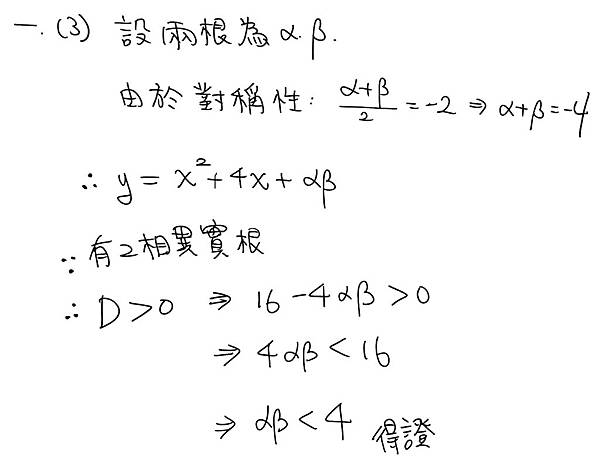 一.(3) 設兩根為α.β.
由於對稱性: (α+β)/2 = -2 ⇒ α+β=-4
∴ y = x²+4x+αβ
∵ 有2相異實根
∴ D>0 ⇒ 16-4αβ>0
⇒ 4αβ<16
⇒ αβ<4 得證